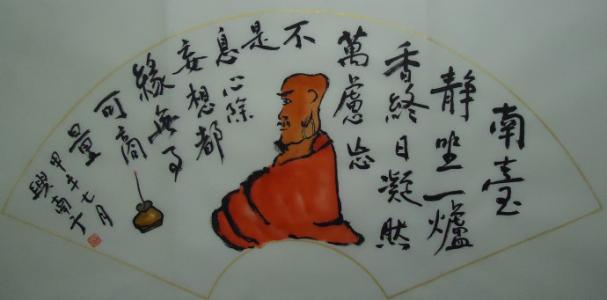 南臺
静坐一爐
香終日凝然
萬慮忘
不
是
息心除
妄想都
緣無事
可商
量
甲午七月
興南